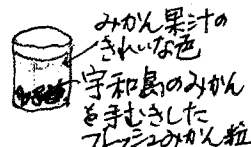 みかん果汁の
きれいな色
宇和島のみかん
を手むきした
フレッシュみかん粒